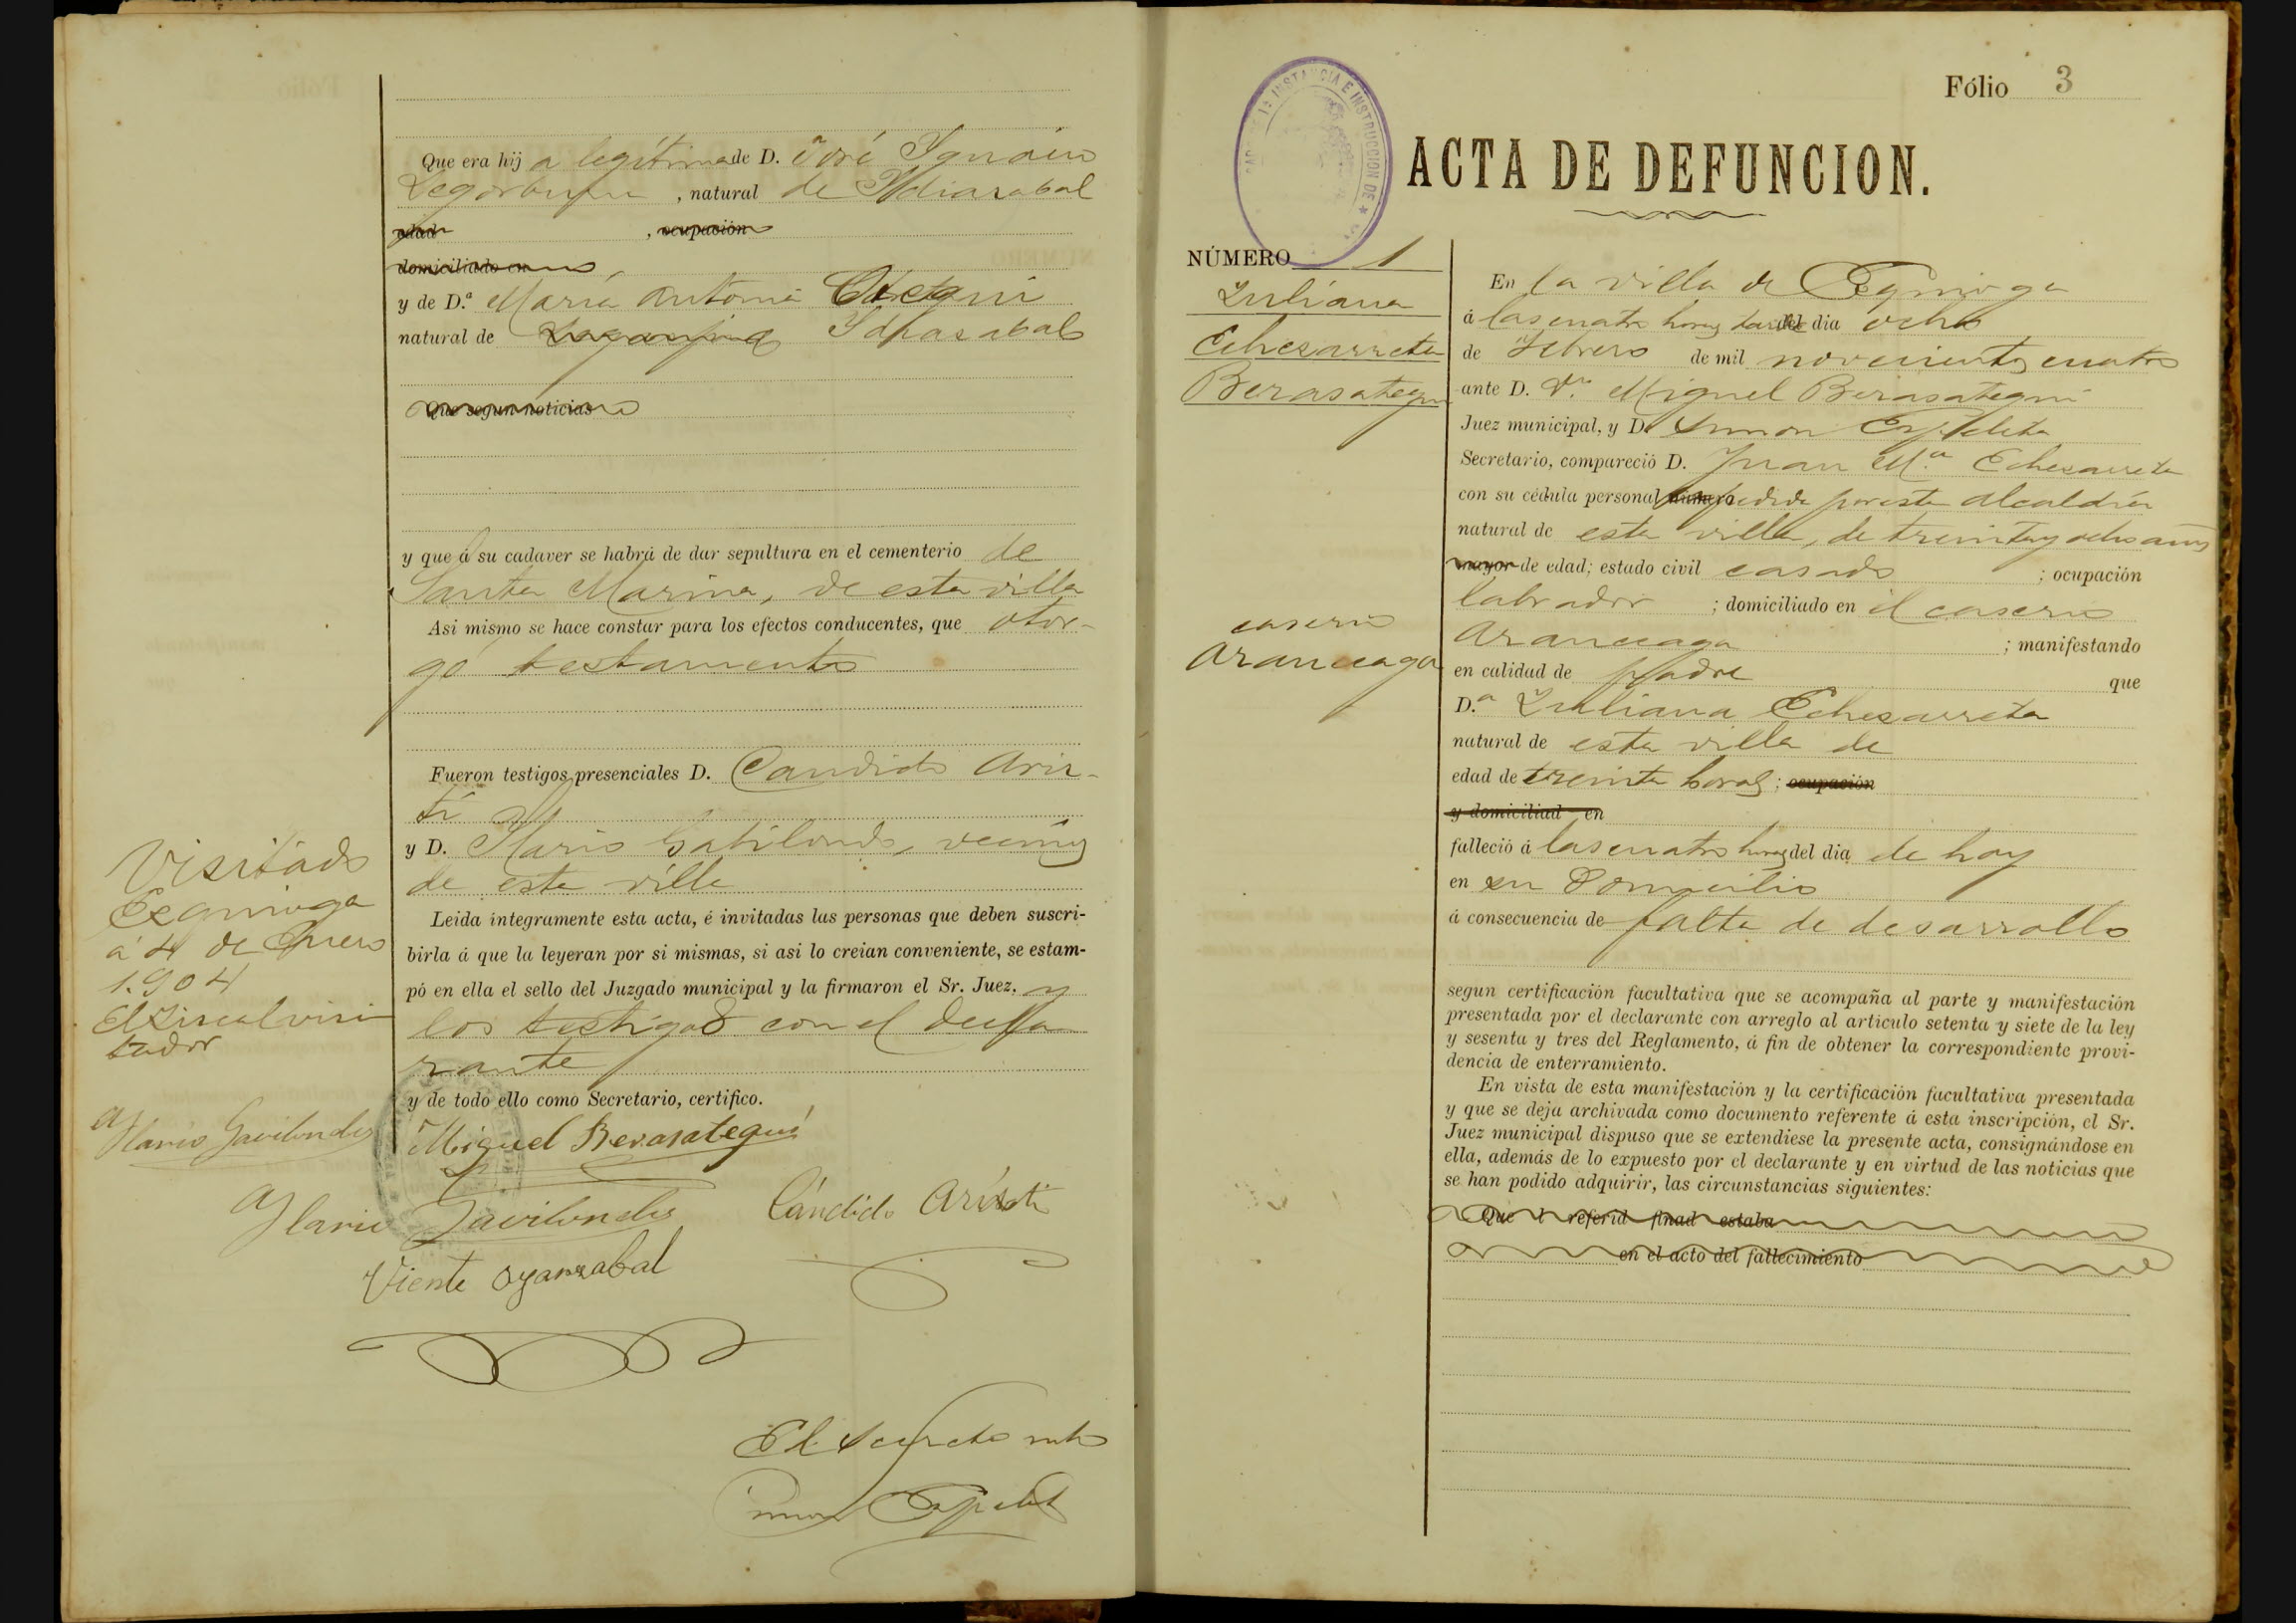 Que era hija legítima de D. José Ignacio
Legorburu, natural de Ydiazabal
edad , ocupación
domiciliado en
y de D.ª María Antonia
natural de Ydiazabal
Que segun noticias
y que á su cadaver se habrá de dar sepultura en el cementerio de
Santa Marina, de esta villa
Asi mismo se hace constar para los efectos conducentes, que otor-
gó testamento
Fueron testigos presenciales D. Candido Aris-
ti
y D. Ylario Gabilondo, vecinos
de esta villa
Leida íntegramente esta acta, é invitadas las personas que deben suscri-
birla á que la leyeran por si mismas, si asi lo creian conveniente, se estam-
pó en ella el sello del Juzgado municipal y la firmaron el Sr. Juez, y
los testigos con el decla
rante
y de todo ello como Secretario, certifico.
Miguel Berasategui
Ylario Gavilondo Cándido Aristi
Viente Oyarzabal
El Secretario
Simon Ezpeleta
Visitado
Ezquioga
á 4 de Enero
1.904
El Fiscal visi
tador
Ylario Gavilondo
Fólio 3
1ª INSTANCIA E INSTRUCCION DE
ACTA DE DEFUNCION.
NÚMERO 1
Juliana
Echezarreta
Berasategui
caserio
Aranceaga
En la villa de Ezquioga
á las cuatro horas tarde del dia ocho
de Febrero de mil novecientos cuatro
ante D. Miguel Berasategui
Juez municipal, y D. Simon Ezpeleta
Secretario, compareció D. Juan M.ª Echezarreta
con su cédula personal número expedida por esta Alcaldía
natural de esta villa, de treinta y ocho años
mayor de edad; estado civil casado ; ocupación
labrador ; domiciliado en el caserio
Aranceaga ; manifestando
en calidad de padre que
D.ª Juliana Echezarreta
natural de esta villa de
edad de treinta horas; ocupación
y domiciliad en
falleció á las cuatro horas del dia de hoy
en su Domicilio
á consecuencia de falta de desarrollo
segun certificación facultativa que se acompaña al parte y manifestación
presentada por el declarante con arreglo al artículo setenta y siete de la ley
y sesenta y tres del Reglamento, á fin de obtener la correspondiente provi-
dencia de enterramiento.
En vista de esta manifestación y la certificación facultativa presentada
y que se deja archivada como documento referente á esta inscripción, el Sr.
Juez municipal dispuso que se extendiese la presente acta, consignándose en
ella, además de lo expuesto por el declarante y en virtud de las noticias que
se han podido adquirir, las circunstancias siguientes:
Que l referid finad estaba
en el acto del fallecimiento